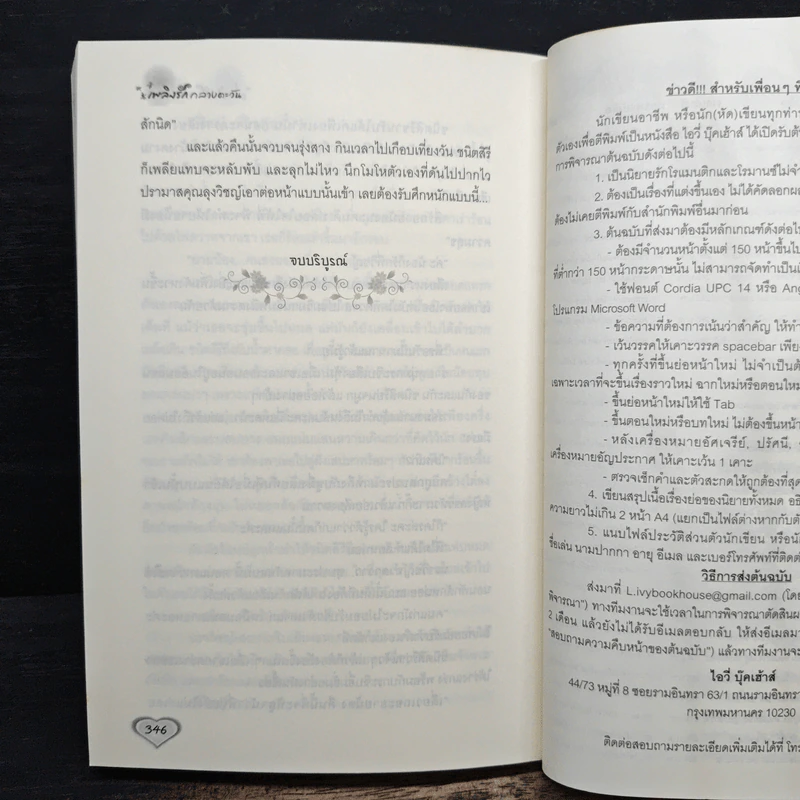 เพลิงรักกลางตะวัน
สักนิด"
และแล้วคืนนั้นจวบจนรุ่งสาง กินเวลาไปเกือบเที่ยงวัน ชนิตสิรี
ก็เพลียแทบจะหลับพับ และลุกไม่ไหว นึกโมโหตัวเองที่ดันไปปากไว
ปรามาสคุณลุงวิชญ์เอาต่อหน้าแบบนั้นเข้า เลยต้องรับศึกหนักแบบนี้...
จบบริบูรณ์
346
ข่าวดี!!! สำหรับเพื่อนๆ
นักเขียนอาชีพ หรือนัก(หัด)เขียนทุกท่าน
ตัวเองเพื่อตีพิมพ์เป็นหนังสือ ไอวี่ บุ๊คเฮ้าส์ ได้เปิดรับ
การพิจารณาต้นฉบับดังต่อไปนี้
1. เป็นนิยายรักโรแมนติกและโรมานซ์
2. ต้องเป็นเรื่องที่แต่งขึ้นเอง ไม่ได้คัดลอก
ต้องไม่เคยตีพิมพ์กับสำนักพิมพ์อื่นมาก่อน
3. ต้นฉบับที่ส่งมาต้องมีหลักเกณฑ์ดังต่อ
- ต้องมีจำนวนหน้าตั้งแต่ 150 หน้าขึ้นไป
ที่ต่ำกว่า 150 หน้ากระดาษนั้น ไม่สามารถจัดทำเป็น
- ใช้ฟอนต์ Cordia UPC 14 หรือ
โปรแกรม Microsoft Word
- ข้อความที่ต้องการเน้นว่าสำคัญ ให้ทำ
- เว้นวรรคให้เคาะวรรค spacebar
- ทุกครั้งที่ขึ้นย่อหน้าใหม่ ไม่จำเป็น
เฉพาะเวลาที่จะขึ้นเรื่องราวใหม่ ฉากใหม่หรือตอนใหม่
- ขึ้นย่อหน้าใหม่ให้ใช้ Tab
- ขึ้นตอนใหม่หรือบทใหม่ ไม่ต้องขึ้นหน้า
- หลังเครื่องหมายอัศเจรีย์, ปรัศนี,
เครื่องหมายอัญประกาศ ให้เคาะเว้น 1 เคาะ
- ตรวจเช็กคำและตัวสะกดให้ถูกต้องที่สุด
4. เขียนสรุปเนื้อเรื่องย่อของนิยายทั้งหมด
ความยาวไม่เกิน 2 หน้า A4 (แยกเป็นไฟล์ต่างหากกับ
5. แนบไฟล์ประวัติส่วนตัวนักเขียน หรือ
ชื่อเล่น นามปากกา อายุ อีเมล และเบอร์โทรศัพท์ที่
วิธีการส่งต้นฉบับ
ส่งมาที่ L.ivybookhouse@gmail.com
พิจารณา") ทางทีมงานจะใช้เวลาในการพิจารณา
2 เดือน แล้วยังไม่ได้รับอีเมลตอบกลับ ให้ส่งอีเมล
"สอบถามความคืบหน้าของต้นฉบับ") แล้วทางทีมงานจะ
ไอวี่ บุ๊คเฮ้าส์
44/73 หมู่ที่ 8 ซอยรามอินทรา 63/1 ถนนรามอินทรา
กรุงเทพมหานคร 10230
ติดต่อสอบถามรายละเอียดเพิ่มเติมได้ที่